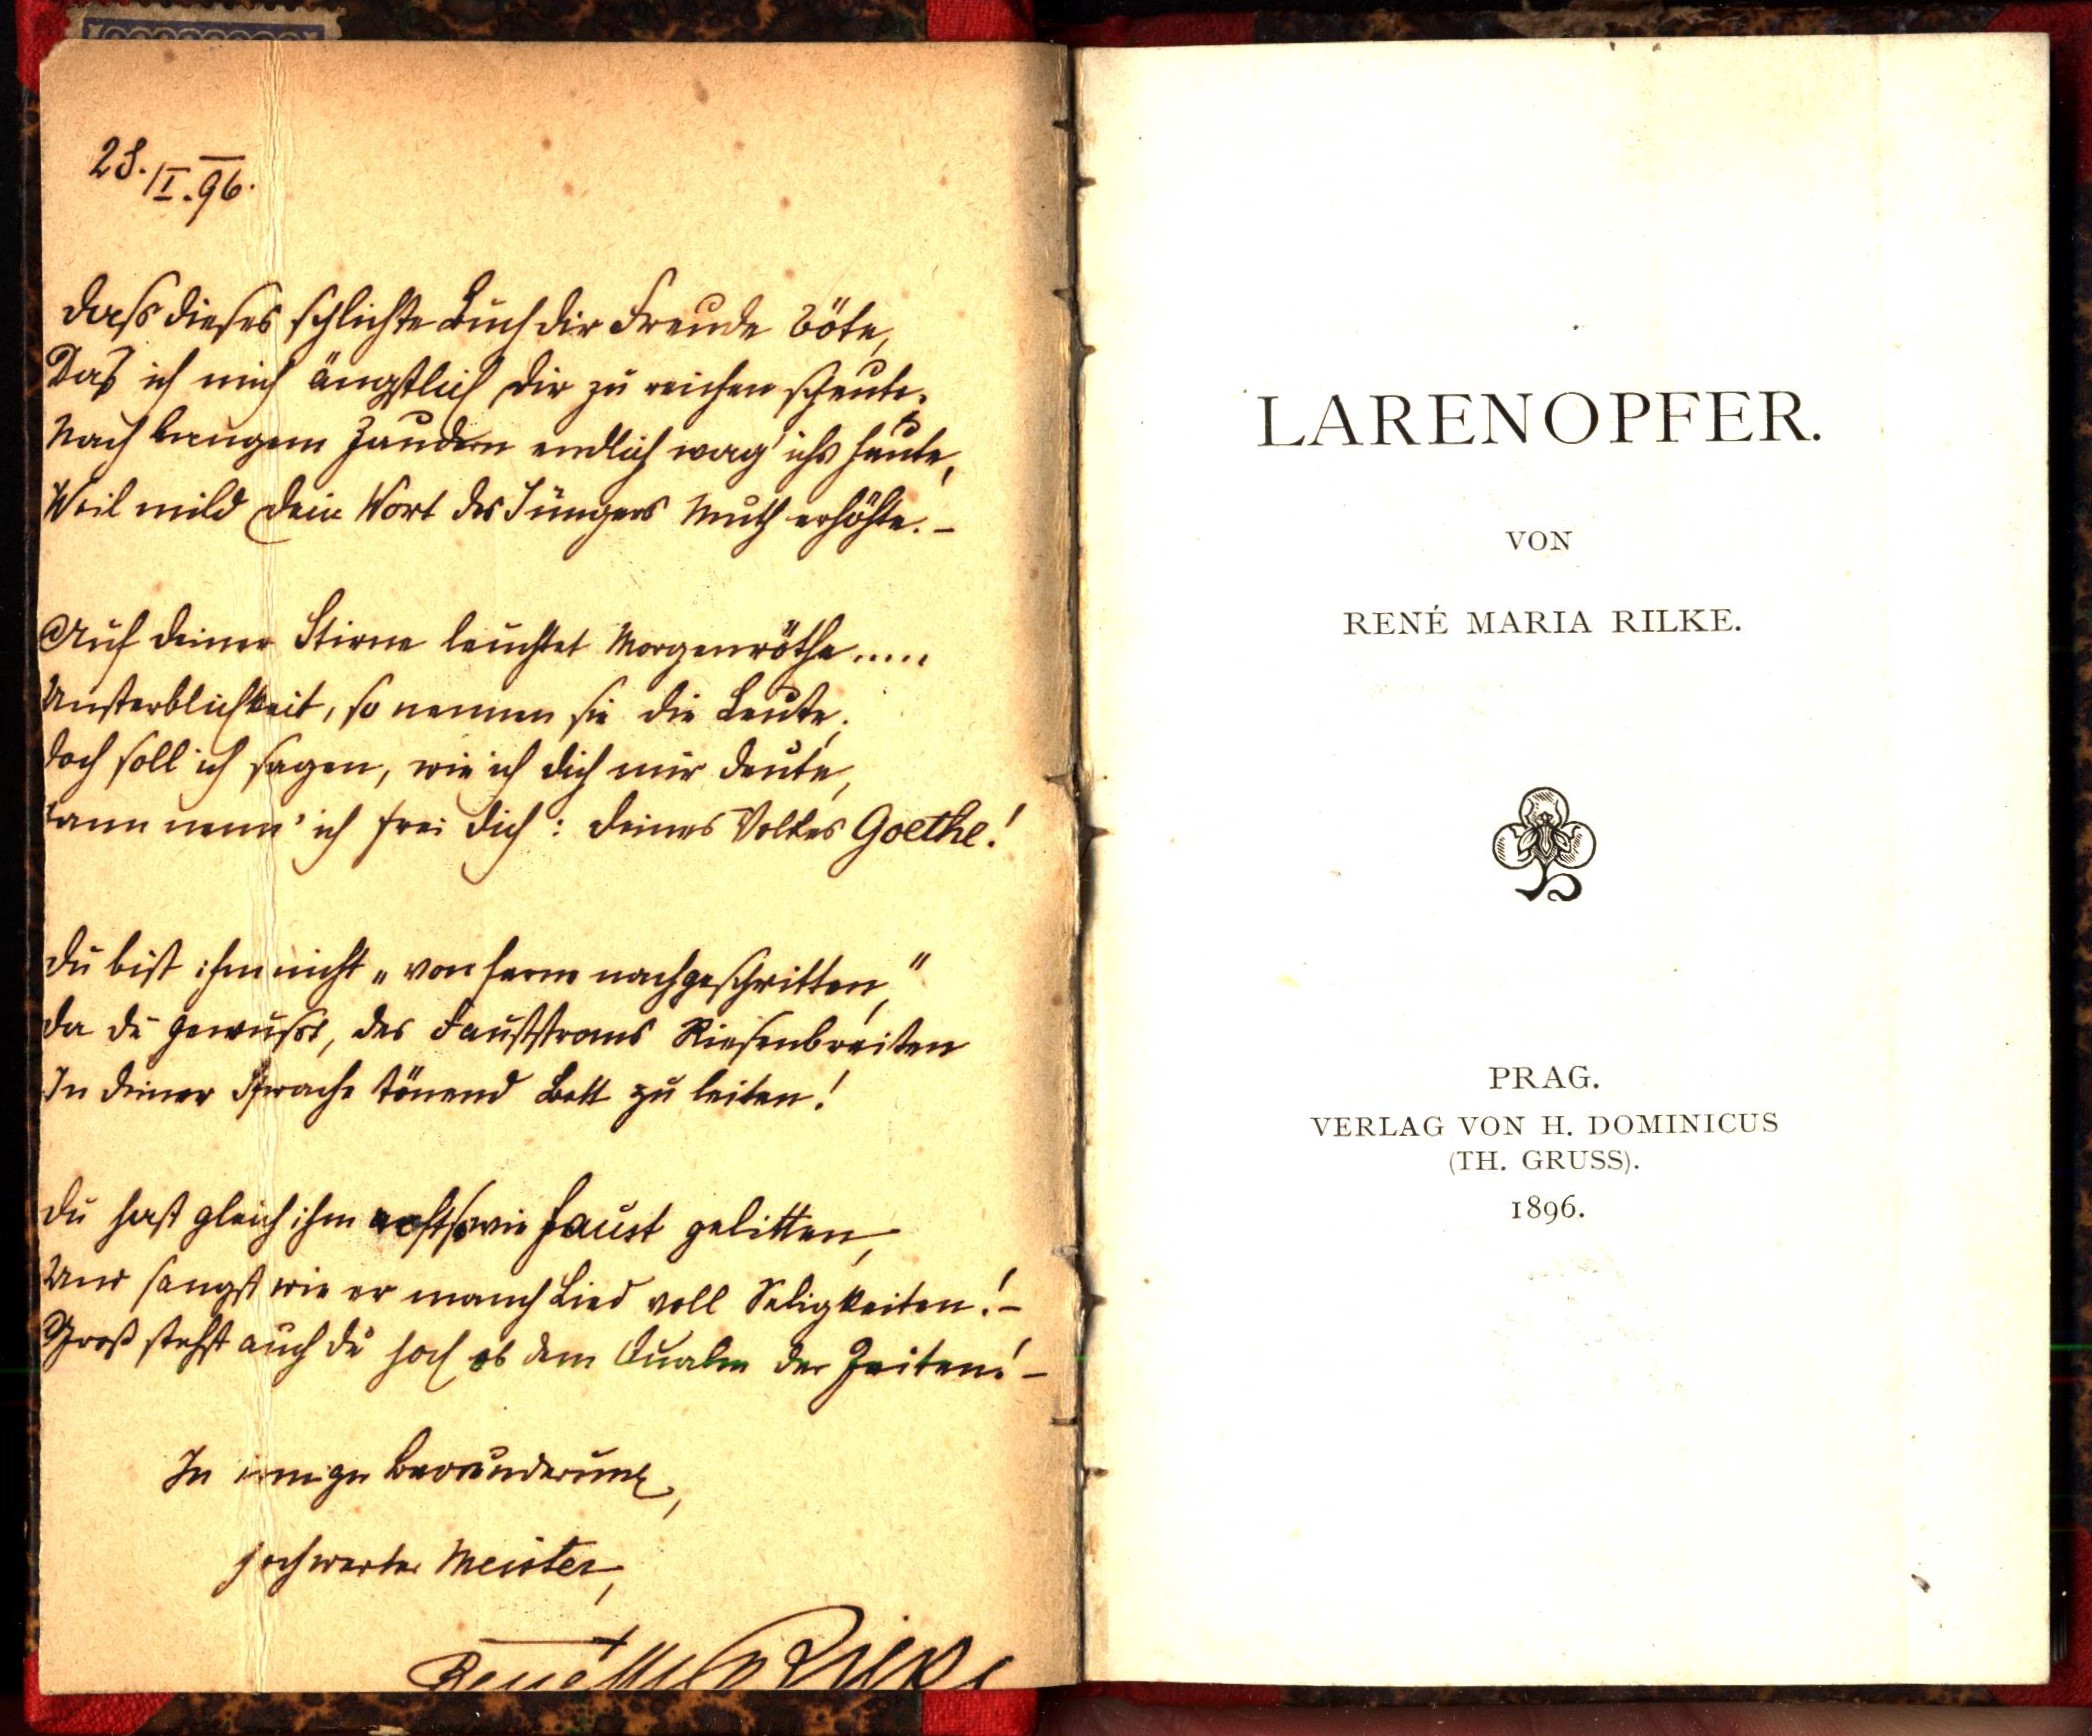 28./I. 96.
Dass dieses schlichte Buch dir Freude böte,
Das ich mich ängstlich dir zu reichen scheute.
Nach bangem Zaudern endlich wag' ichs heute,
Weil mild dein Wort des Jüngers Muth erhöhte. –
Auf deiner Stirne leuchtet Morgenröthe.....
Unsterblichkeit, so nennen sie die Leute.
Doch soll ich sagen, wie ich dich mir deute,
Dann nenn' ich frei dich: deines Volkes Goethe!
Du bist ihm nicht „von ferne nachgeschritten,"
Da du gewusst, des Fauststroms Riesenbreiten
In deiner Sprache tönend Bett zu leiten!
Du hast gleich ihm wie Faust gelitten,
Und sangst wie er manch Lied voll Seligkeiten! –
Groß stehst auch du hoch ob dem Qualm der Zeiten! –
In inniger Bewunderung,
hochwerter Meister,
René Maria Rilke
LARENOPFER.
VON
RENÉ MARIA RILKE.
PRAG.
VERLAG VON H. DOMINICUS
(TH. GRUSS).
1896.